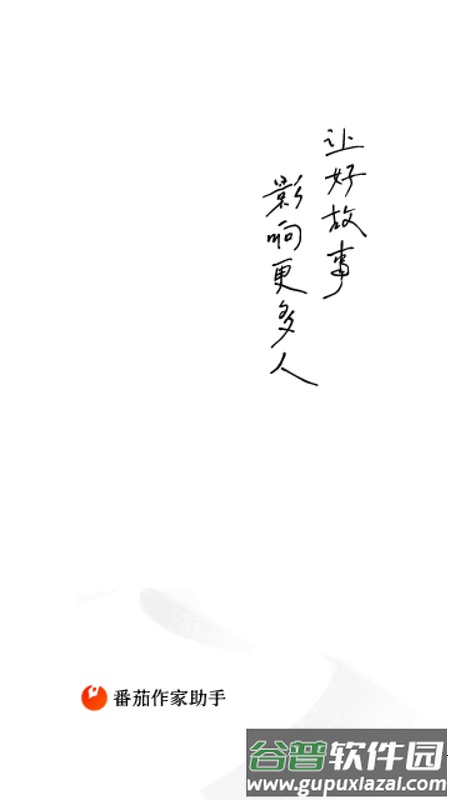 让好故事
影响更多人
番茄作家助手
谷普软件园
www.gupuxlazal.com